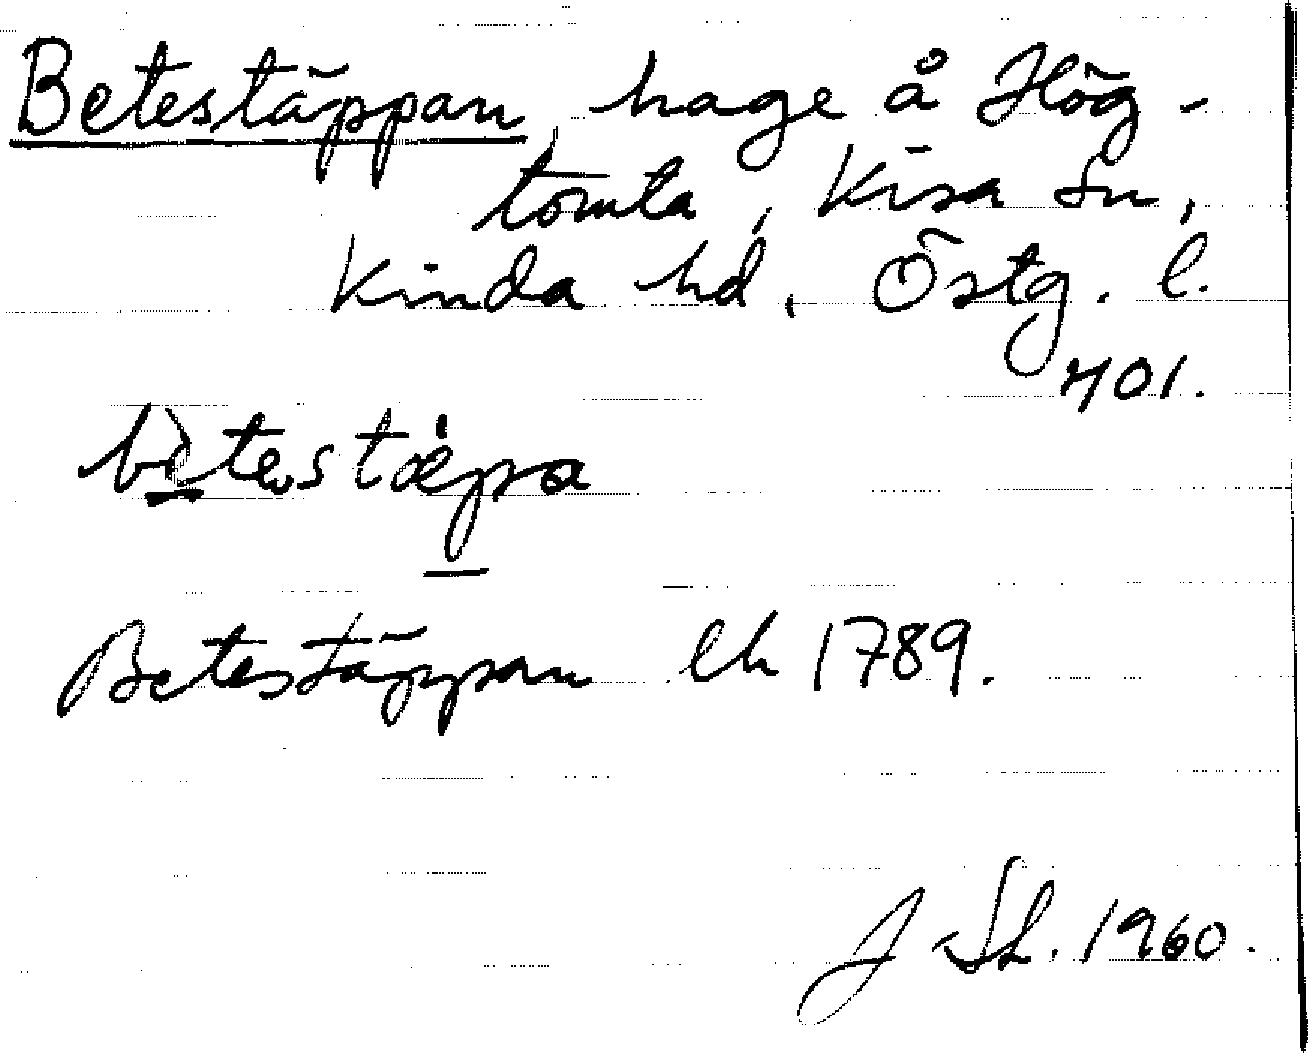 Betestäppan, hage å Hög-
tomta, Kisa sn,
Kinda hd, Östg. l.
401.
bètestæpa
Betestäppan lh 1789.
J Sh. 1960.